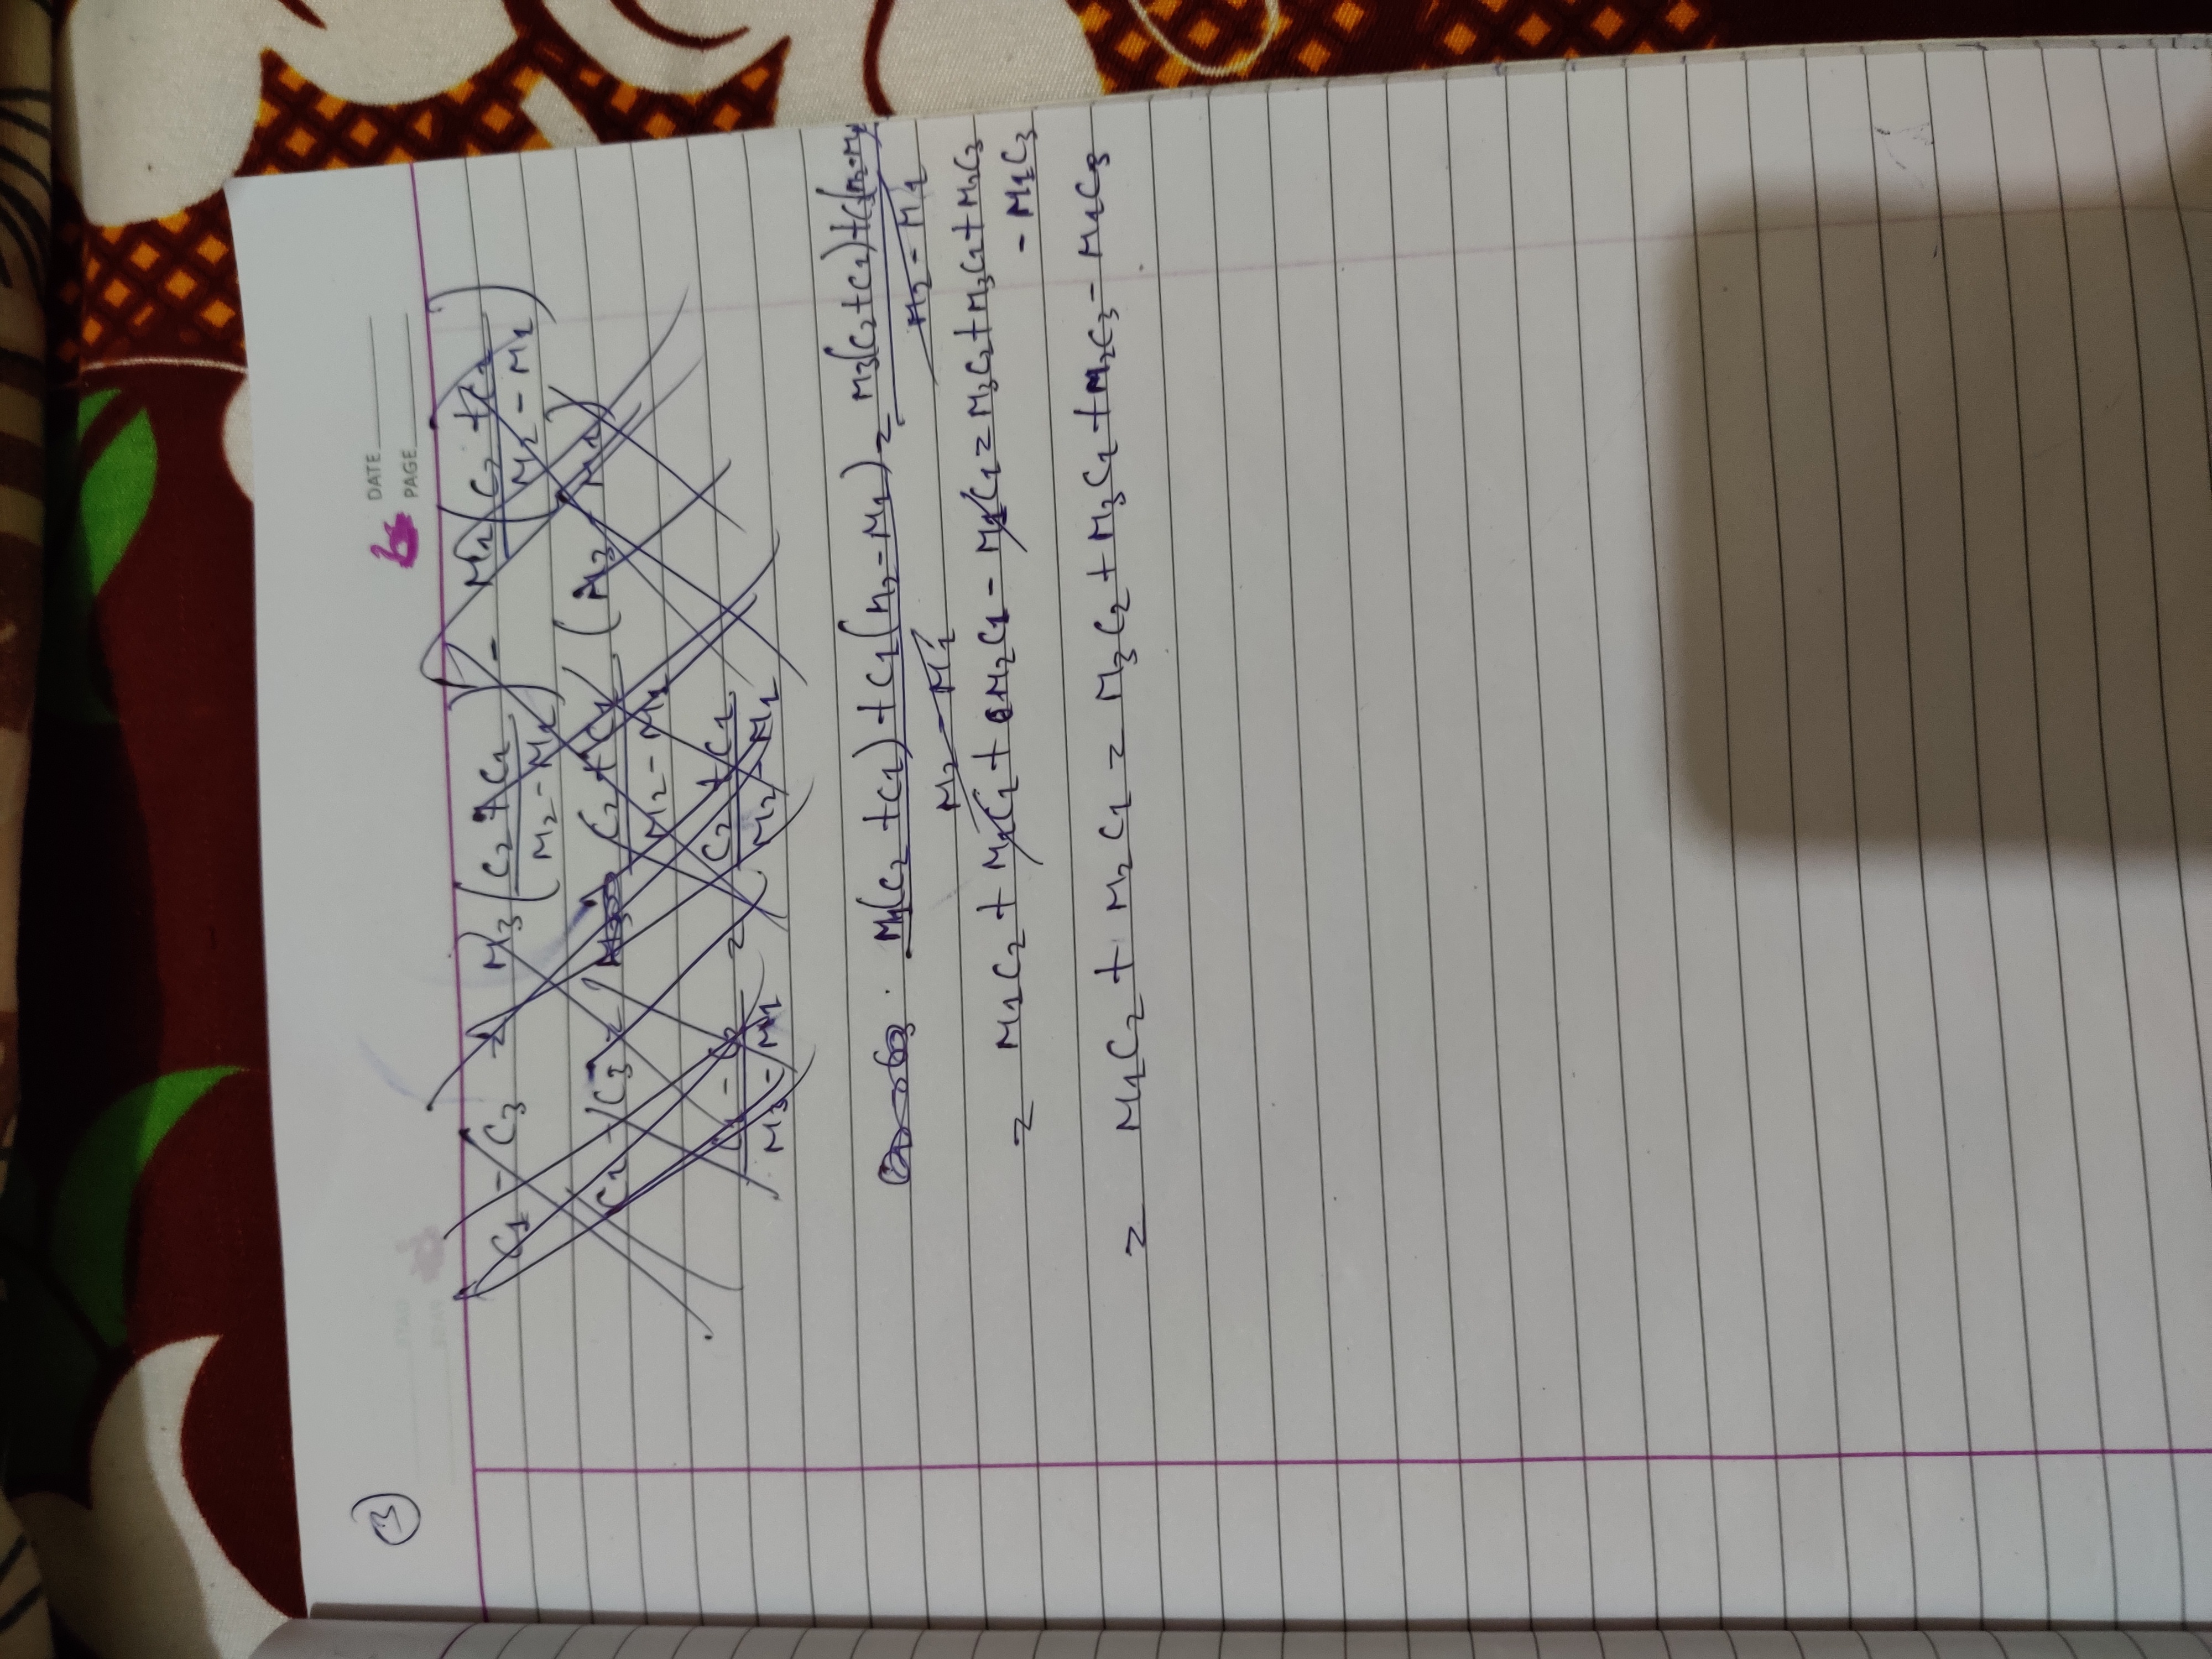 3
DATE
PAGE
C1 - C3 = M3 (C2 + C1 / M2 - M1) - M1 (C2 + C1 / M2 - M1)
C1 - C3 = C2 + C1 / M2 - M1 (M3 - M1)
C1 - C3 / M3 - M1 = C2 + C1 / M2 - M1
M1(C2 + C1) + C1(M2 - M1) / M2 - M1 = M3(C2 + C1) + C3(M2 - M1) / M2 - M1
= M1C2 + M1C1 + M2C1 - M1C1 = M3C2 + M3C1 + M2C3
- M1C3
= M1C2 + M2C1 = M3C2 + M3C1 + M2C3 - M1C3